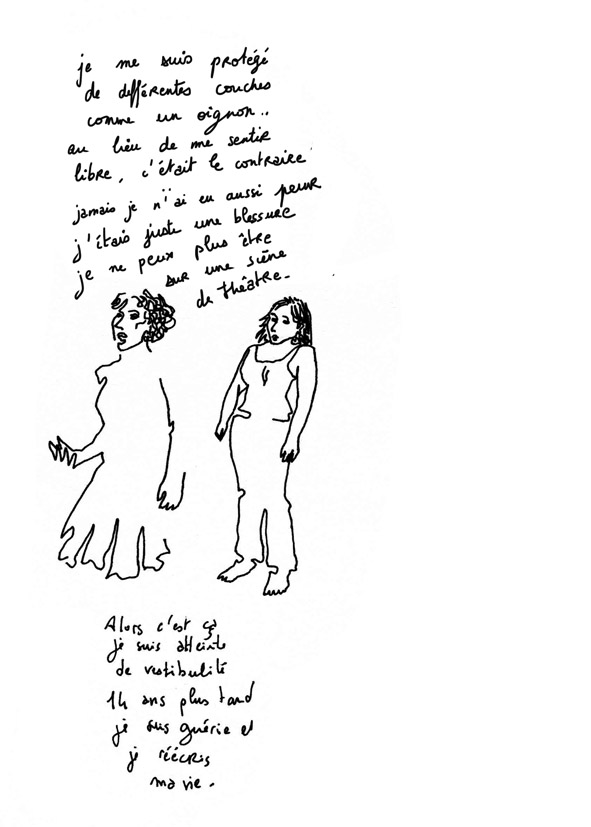 je me suis protégé
de différentes couches
comme un oignon..
au lieu de me sentir
libre, c'était le contraire
jamais je n'ai eu aussi peur
j'étais juste une blessure
je ne peux plus être
sur une scène
de théâtre.
Alors c'est ça
je suis atteinte
de vestibulité
14 ans plus tard
je suis guérie et
je réécris
ma vie.